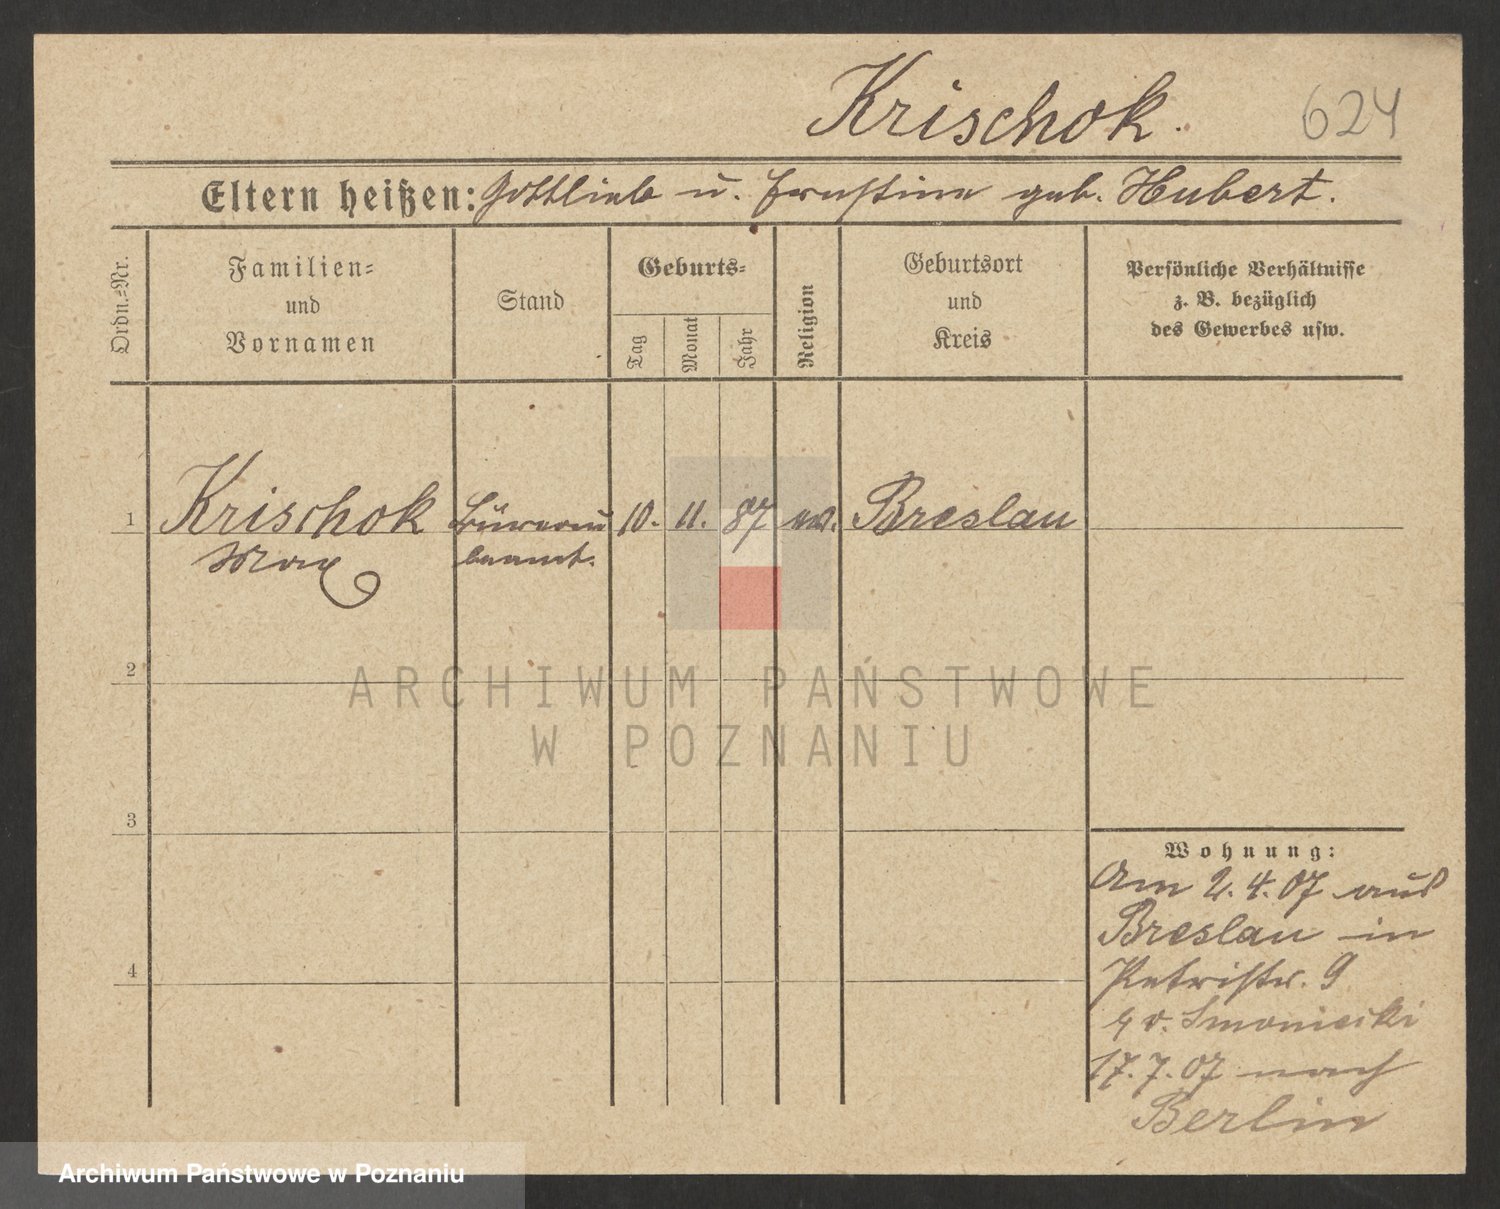 Krischok.
624
Eltern heißen: Gottlieb u. Ernstine geb. Hubert.
Ordn.-Nr.
Familien-
und
Vornamen
Stand
Geburts-
Tag
Monat
Jahr
Religion
Geburtsort
und
Kreis
Persönliche Verhältnisse
z. B. bezüglich
des Gewerbes usw.
1 Krischok Büreau 10. 11. 87 ev. Breslau
Max beamt.
2
3
4
Wohnung:
Am 2.4.07 aus
Breslau in
Petristr. 9
b v. Smoniecki
17.7.07 nach
Berlin
ARCHIWUM PAŃSTWOWE
W POZNANIU
Archiwum Państwowe w Poznaniu